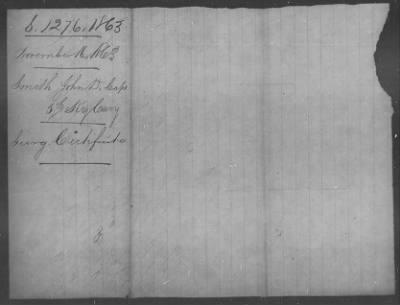 S. 1276. 1863
November 16, 1863
Smith John D. Capt
Ky Cavy
Surg. Certificate